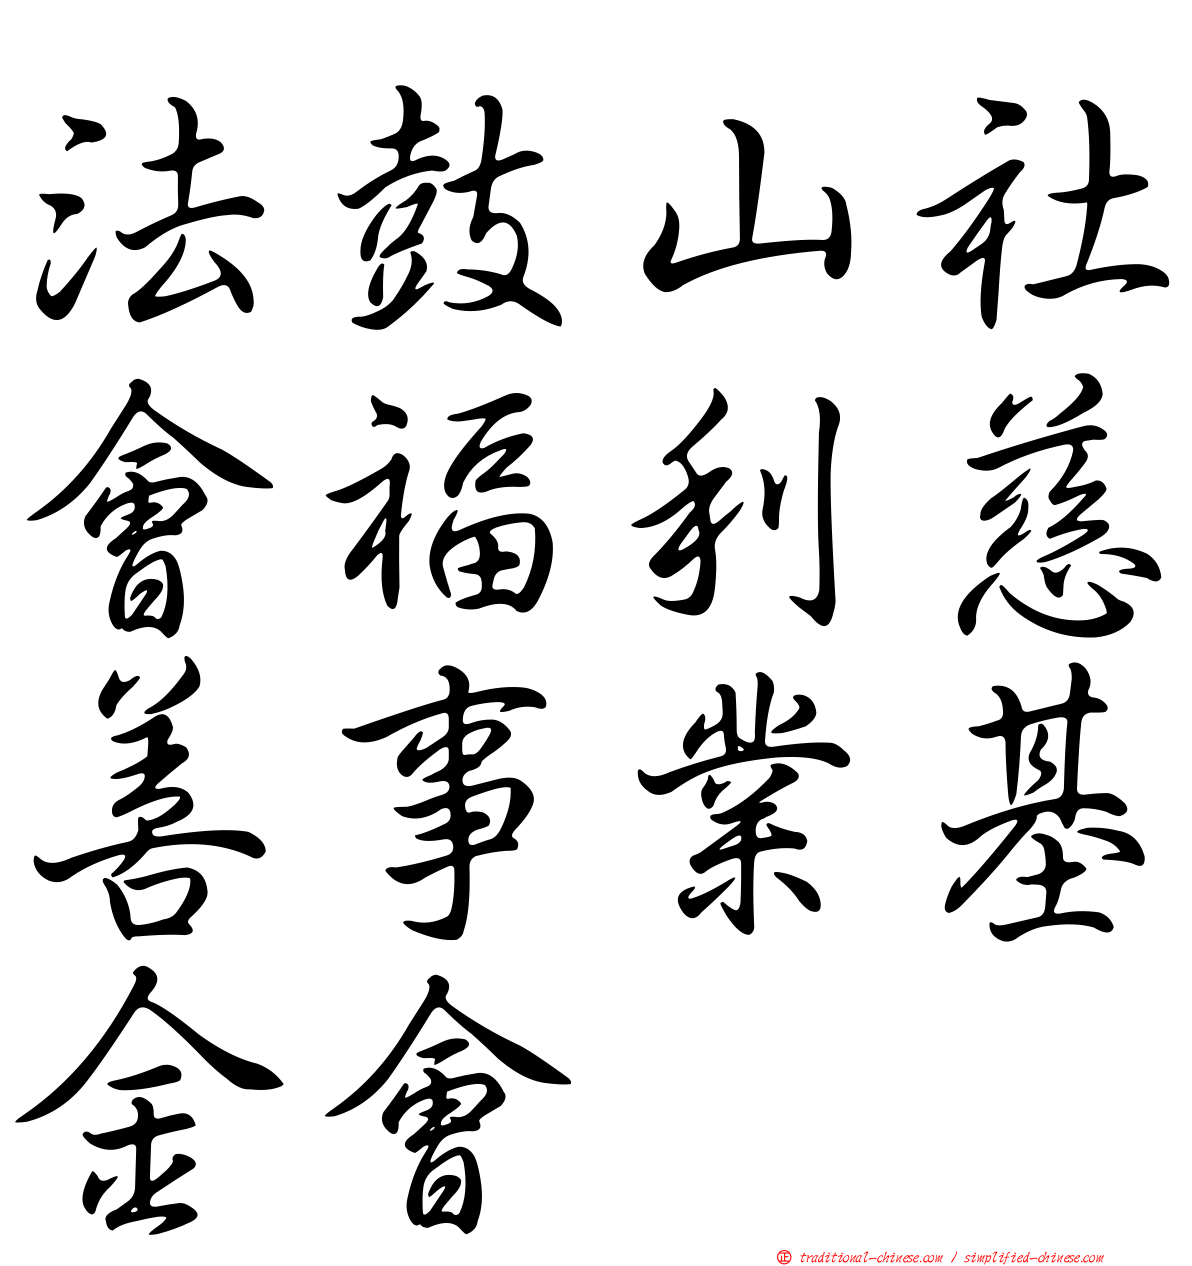 法鼓山社
會福利慈
善事業基
金會
正 traditional-chinese.com / simplified-chinese.com